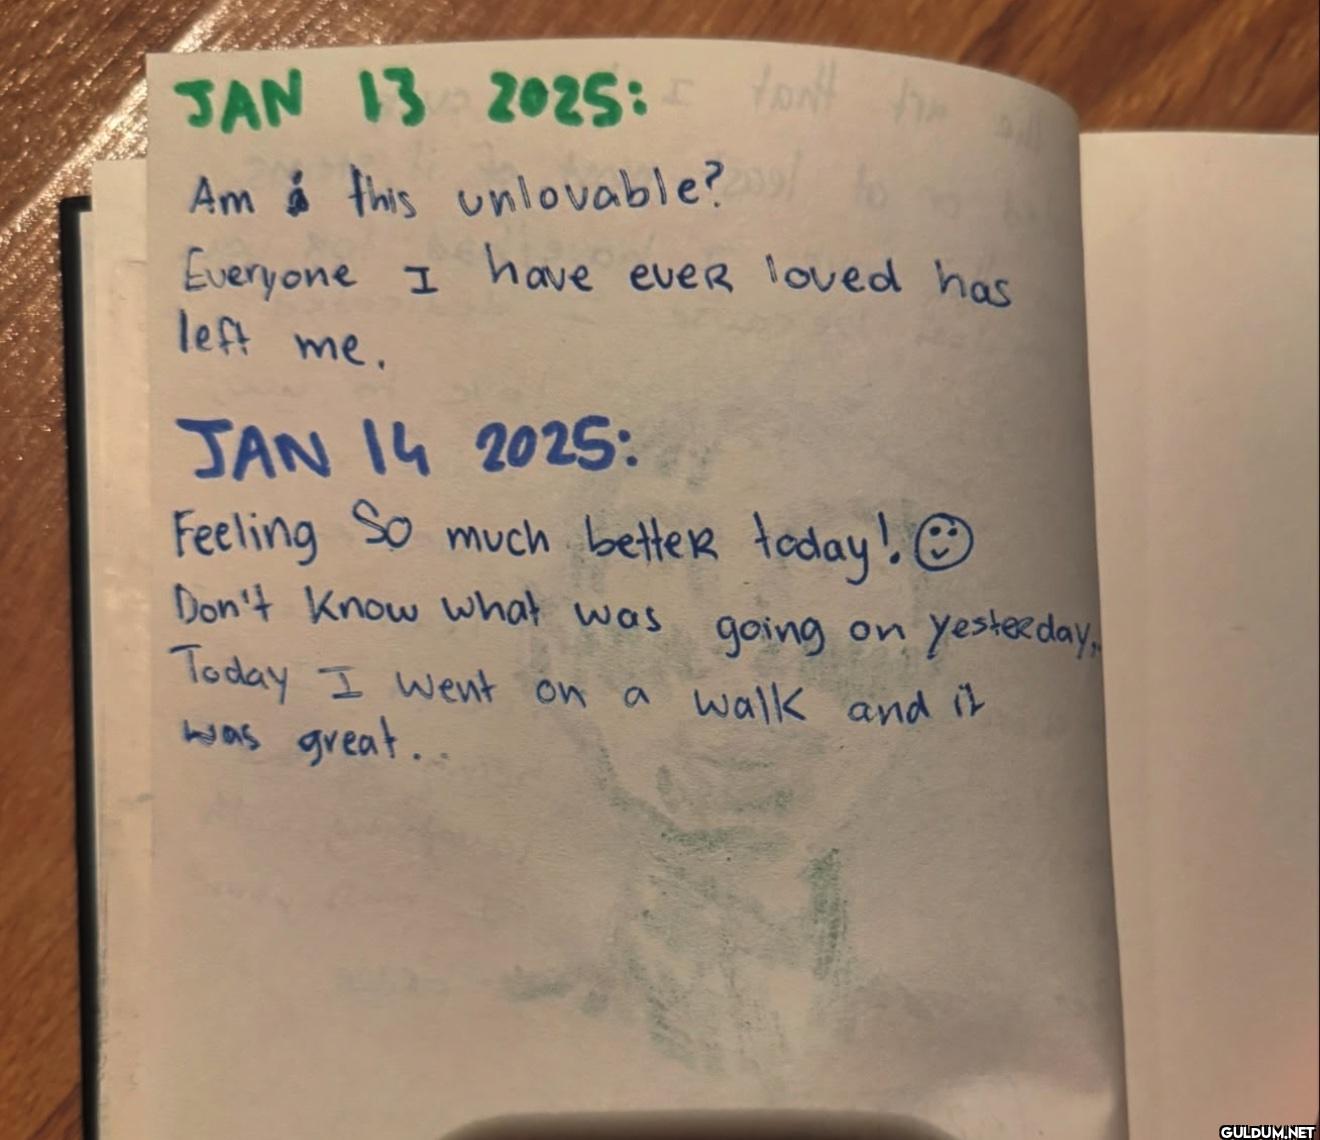 JAN 13 2025:
Am i this unlovable?
Everyone I have ever loved has
left me.
JAN 14 2025:
Feeling SO much better today!
Don't know what was going on yesterday,
Today I went on a walk and it
was great..
GULDUM.NET